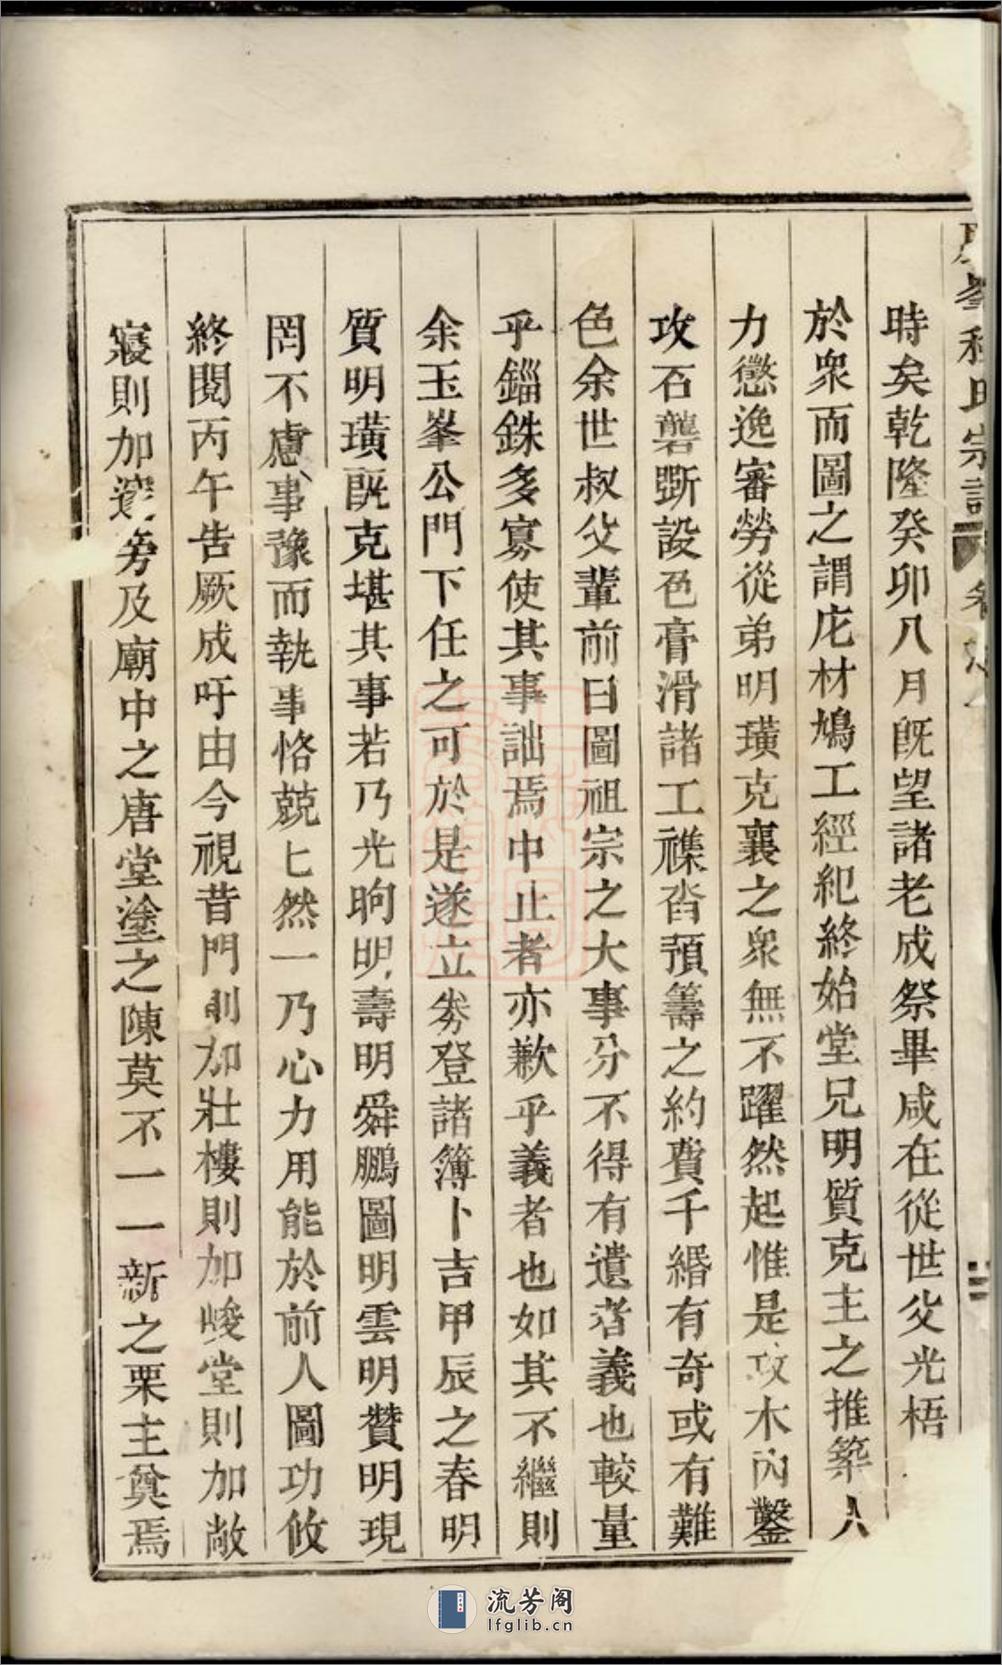 峯程氏宗譜 卷
時矣乾隆癸卯八月旣望諸老成祭畢咸在從世父光梧
於衆而圖之謂庀材鳩工經紀終始堂兄明質克主之推築人
力懲逸審勞從弟明璜克襄之衆無不躍然起惟是攻木內鑿
攻石礱斲設色膏滑諸工襍沓預籌之約費千緡有奇或有難
色余世叔父輩前曰圖祖宗之大事分不得有遺者義也較量
乎錙銖多寡使其事詘焉中止者亦歉乎義者也如其不繼則
余玉峯公門下任之可於是遂立劵登諸簿卜吉甲辰之春明
質明璜既克堪其事若乃光昫明壽明舜鵬圖明雲明贊明現
罔不慮事豫而執事恪兢匕然一乃心力用能於前人圖功攸
終閱丙午告厥成吁由今視昔門則加壯樓則加峻堂則加敞
寢則加邃旁及廟中之唐堂塗之陳莫不一一新之栗主奠焉
流芳阁
lfglib.cn